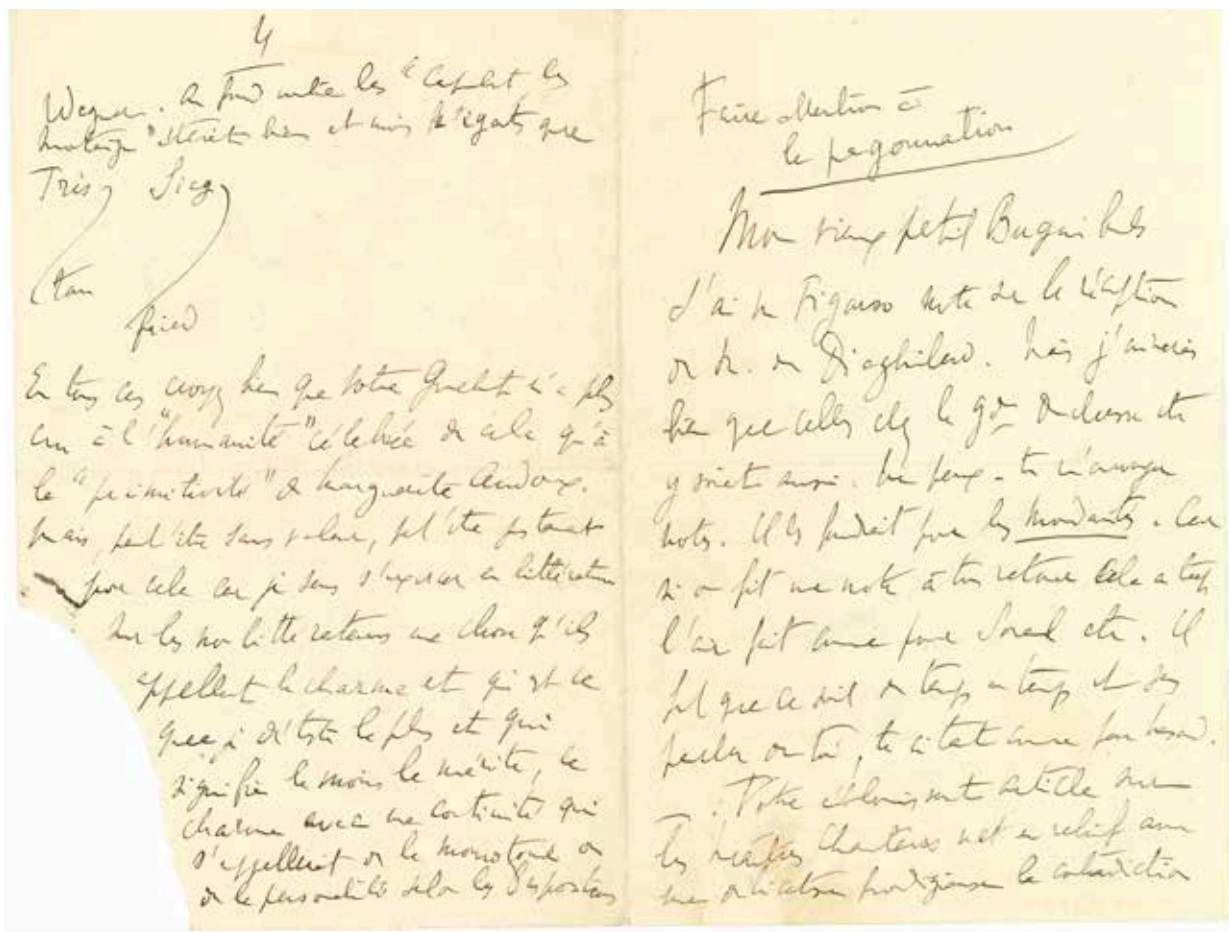 4
Wagner. Au fond entre les "
" bien et moins que
Tris Sieg
tan
fried
En tous cas croyez bien que votre n'a plus
cru à l'"humanité" célébrée de cela qu'à
la "primitivité" de Marguerite Audoux.
mais, peut'être sans valeur, pt'être justement
pour cela car je sens s'exercer en littérature
sur les non littérateurs une chose qu'ils
appellent le charme et qui est ce
que je déteste le plus et qui
signifie le moins le mérite, ce
charme avec une continuité qui
s'appellerait de la monotonie ou
de la personnalité selon les dispositions
Faire attention à
la pagonnation
Mon vieux petit Bugnibuls
J'ai vu Figaro note sur la réception
de M. de Diaghilew. Mais j'aimerais
bien que celles chez la Gde Duchesse etc
y soient aussi. Ne peux-tu m'envoyer
notes. Il les faudrait pour les Mondanités. Car
si on fait une note à ton retour cela a trop
l'air fait comme pour Sorel etc. Il
fat que ce soit de temps en temps et sans
parler de toi, te citant comme par hasard.
Votre éblouissant article sur
les Maîtres Chanteurs met en relief avec
une prodigieuse la contradiction